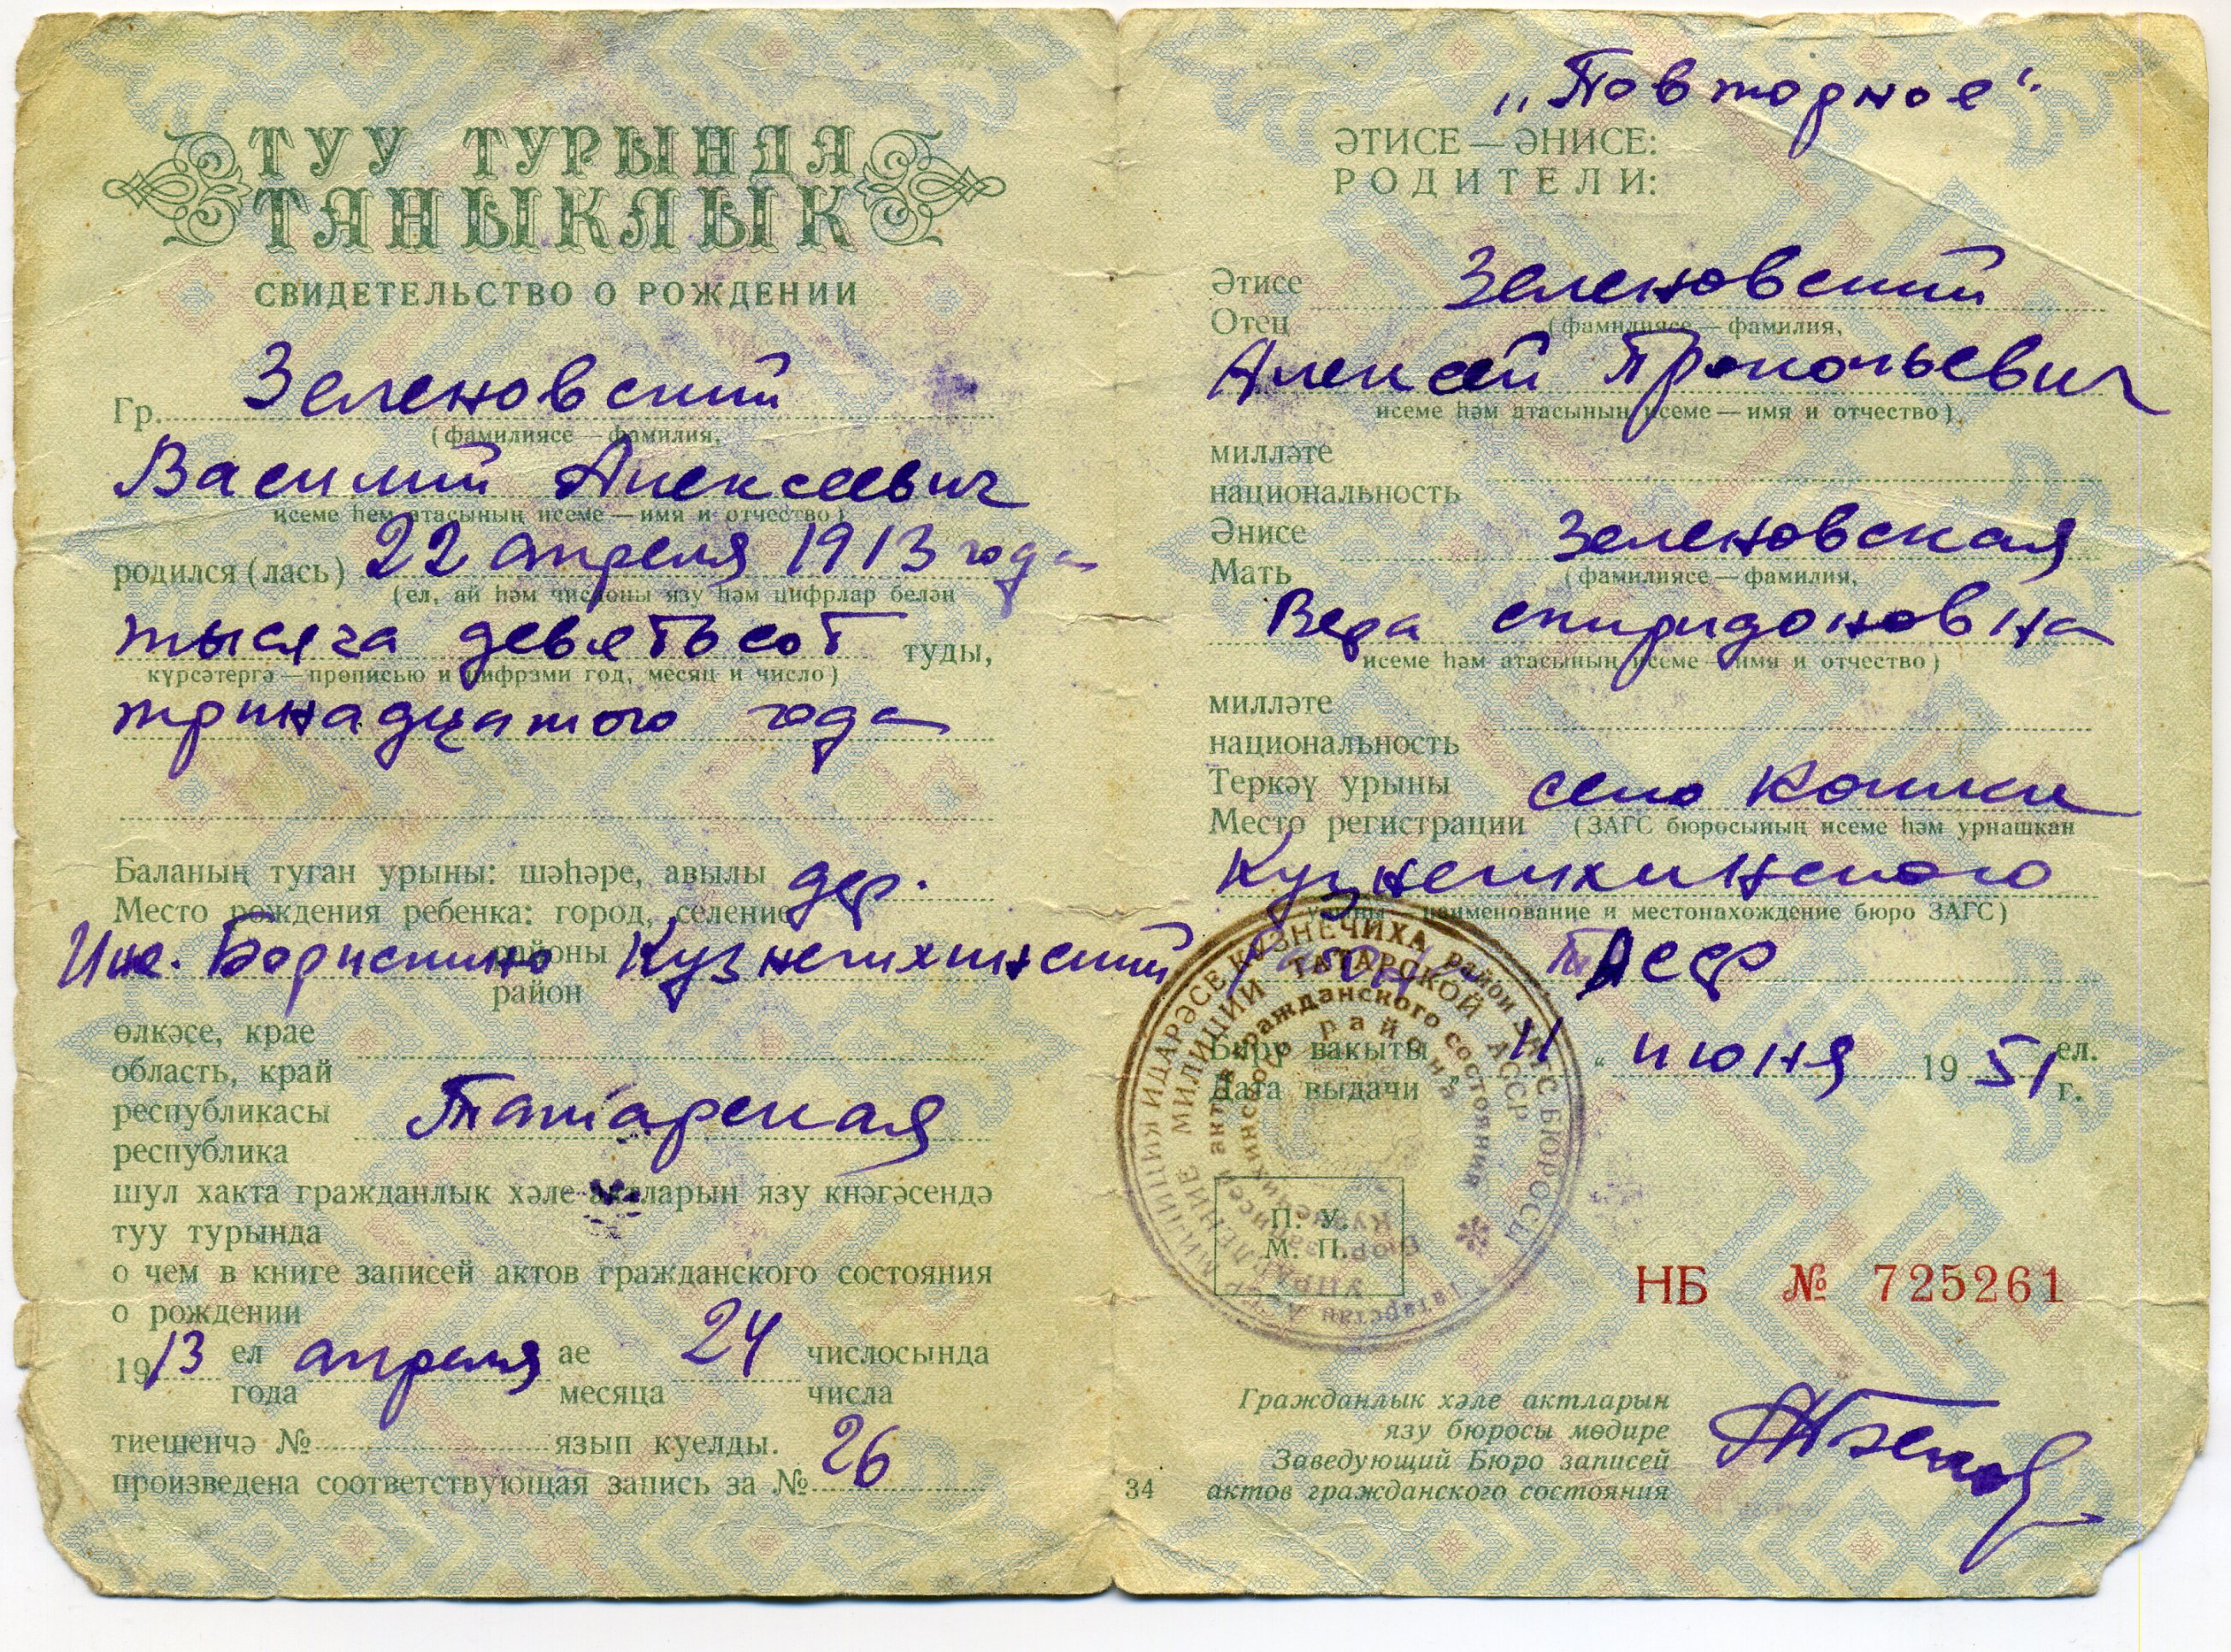 ТУУ ТУРЫНДА
ТАНЫКЛЫК
СВИДЕТЕЛЬСТВО О РОЖДЕНИИ
Гр. Зеленовский
(фамилиясе — фамилия,
Василий Алексеевич
исеме һәм атасының исеме — имя и отчество)
родился (лась) 22 апреля 1913 года
(ел, ай һәм числоны язу һәм цифрлар белән
тысяча девятьсот туды,
күрсәтергә — прописью и цифрами год, месяц и число)
тринадцатого года
Баланың туган урыны: шәһәре, авылы
Место рождения ребенка: город, селение дер.
Борискино
районы
район
Кузнечихинский
өлкәсе, крае
область, край
республикасы
республика
Татарская
шул хакта гражданлык хәле актларын язу кнәгәсендә
туу турында
о чем в книге записей актов гражданского состояния
о рождении
1913 ел апреля ае 24 числосында
года месяца числа
тиешенчә № язып куелды.
произведена соответствующая запись за № 26
„Повторное“
ӘТИСЕ — ӘНИСЕ:
РОДИТЕЛИ:
Әтисе
Отец
Зеленовский
(фамилиясе — фамилия,
Алексей Прокопьевич
исеме һәм атасының исеме — имя и отчество)
милләте
национальность
Әнисе
Мать
Зеленовская
(фамилиясе — фамилия,
Вера спиридоновна
исеме һәм атасының исеме — имя и отчество)
милләте
национальность
Теркәү урыны
Место регистрации
село Кошки
(ЗАГС бюросының исеме һәм урнашкан
Кузнечихинского
урыны — наименование и местонахождение бюро ЗАГС)
района
Бирү вакыты
Дата выдачи
„ 11 “ июня 1951 ел.
г.
П. У.
М. П.
НБ № 725261
Гражданлык хәле актларын
язу бюросы мөдире
Заведующий Бюро записей
актов гражданского состояния
34